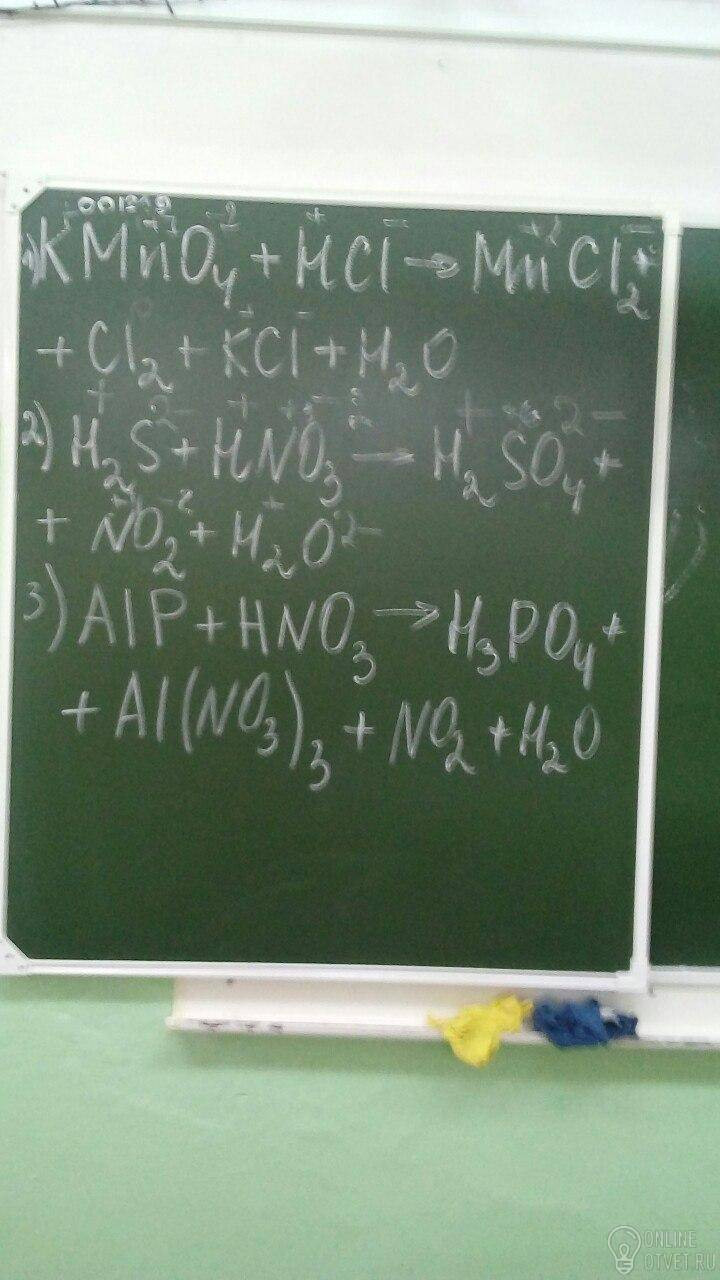 1) KMnO₄ + HCl → MnCl₂ +
+ Cl₂ + KCl + H₂O
2) H₂S + HNO₃ → H₂SO₄ +
+ NO₂ + H₂O
3) AlP + HNO₃ → H₃PO₄ +
+ Al(NO₃)₃ + NO₂ + H₂O
ONLINE
OTVET.RU